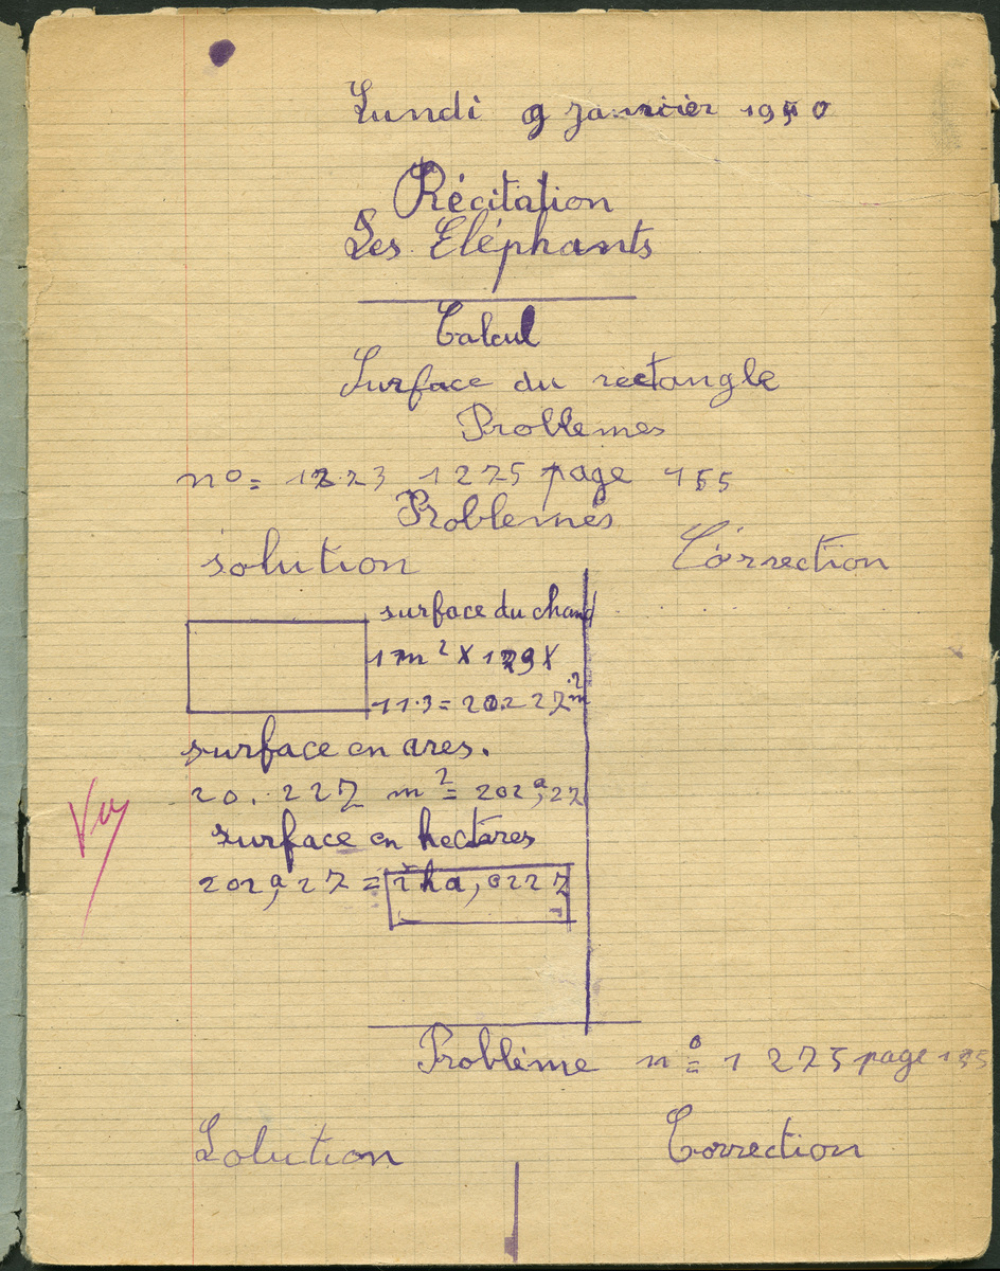 Lundi 9 Janvier 1950
Récitation
Les Eléphants
Calcul
Surface du rectangle
Problemes
n° = 1223 1225 page 155
Problemes
solution
Correction
surface du champ
1 m² X 179 X
113 = 20.227 m²
surface en ares.
20.227 m² = 202a,27
Vu
surface en hectares
202a,27 = 2 ha, 0227
Problème n° = 1225 page 155
Solution
Correction